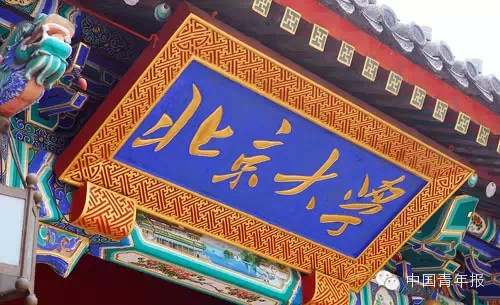 北京大学
中国青年报